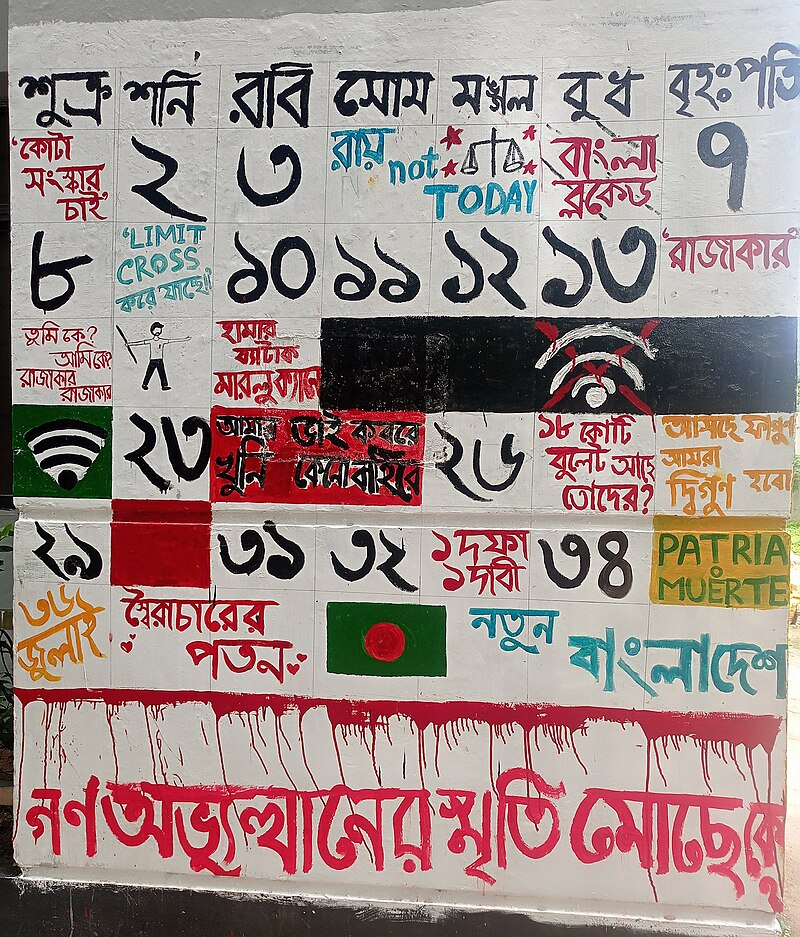 শুক্র শনি রবি সোম মঙ্গল বুধ বৃহঃপতি
'কোটা
সংস্কার
চাই'
২ ৩
রায়
not
TODAY
বাংলা
ব্লকেড
৭
৮
'LIMIT
CROSS
করে যাচ্ছে।'
১০ ১১ ১২ ১৩
'রাজাকার'
তুমি কে?
আমি কে?
রাজাকার
রাজাকার
হামার
ব্যাটাক
মারলু ক্যানে
২৩
আমার ভাই কবরে
খুনি কেনো বাহিরে
২৬
১৮ কোটি
বুলেট আছে
তোদের?
আসছে ফাগুন
আমরা
দ্বিগুণ হবো
২৯ ৩১ ৩২
১ দফা
১ দাবী
৩৪
PATRIA
O
MUERTE
৩৬
জুলাই
স্বৈরাচারের
পতন
নতুন
বাংলাদেশ
গণ অভ্যুত্থানের স্মৃতি মোছে কে